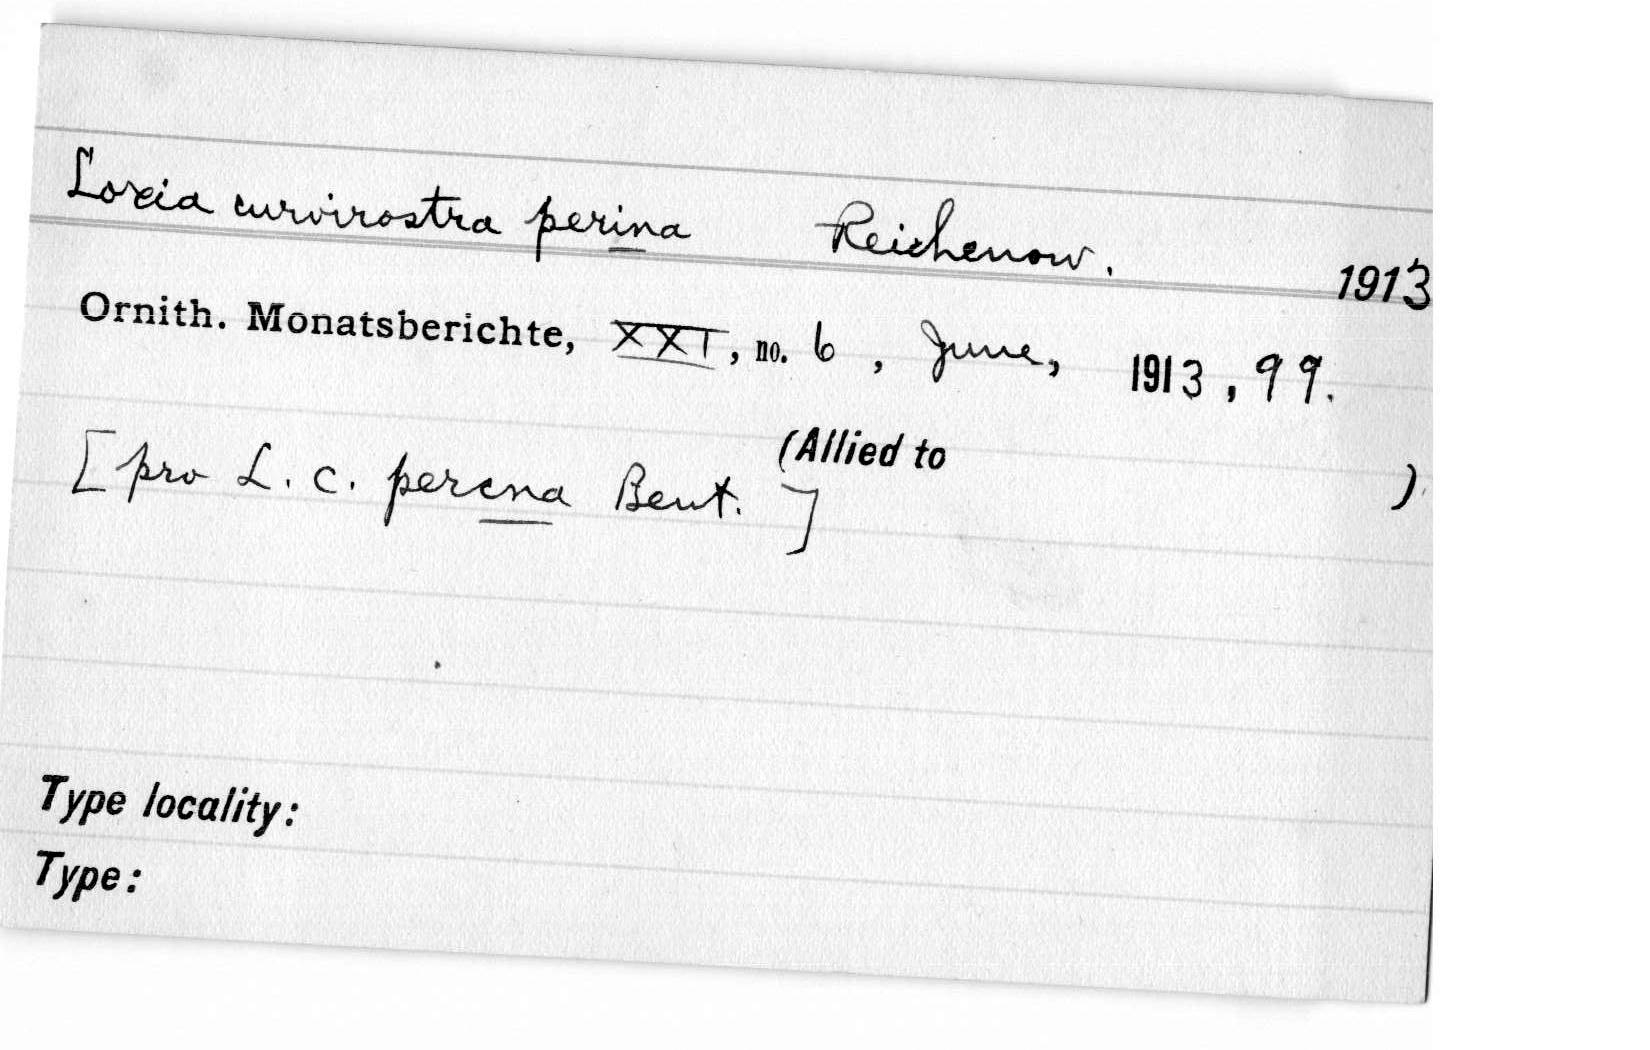 Loxia curvirostra perina Reichenow. 1913
Ornith. Monatsberichte, XXI, no. 6, June, 1913, 99.
(Allied to )
[pro L. c. percna Bent.]
Type locality:
Type: